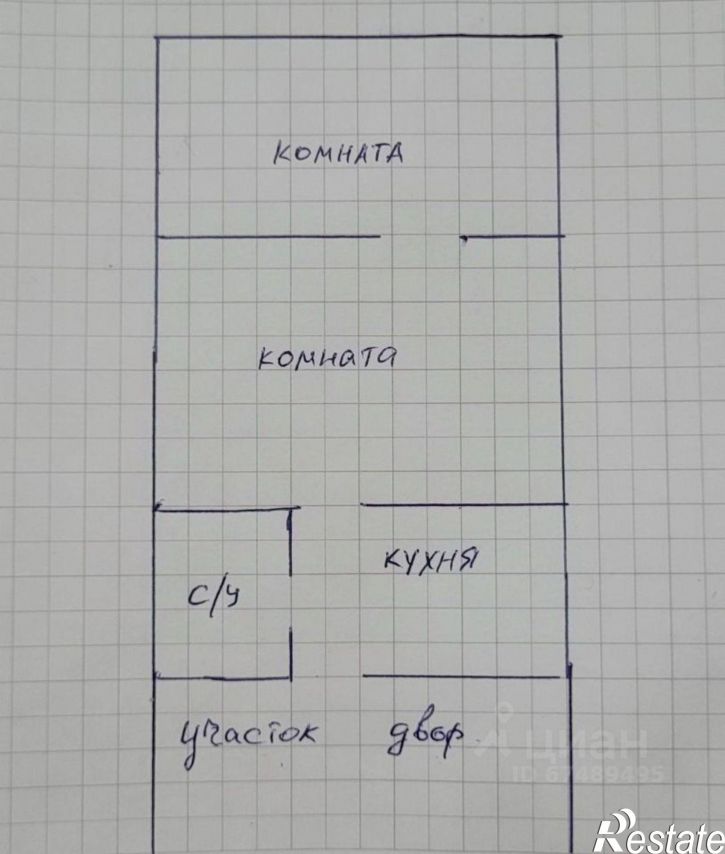 комната
комната
кухня
с/у
участок двор
циан
ID 67489495
Restate